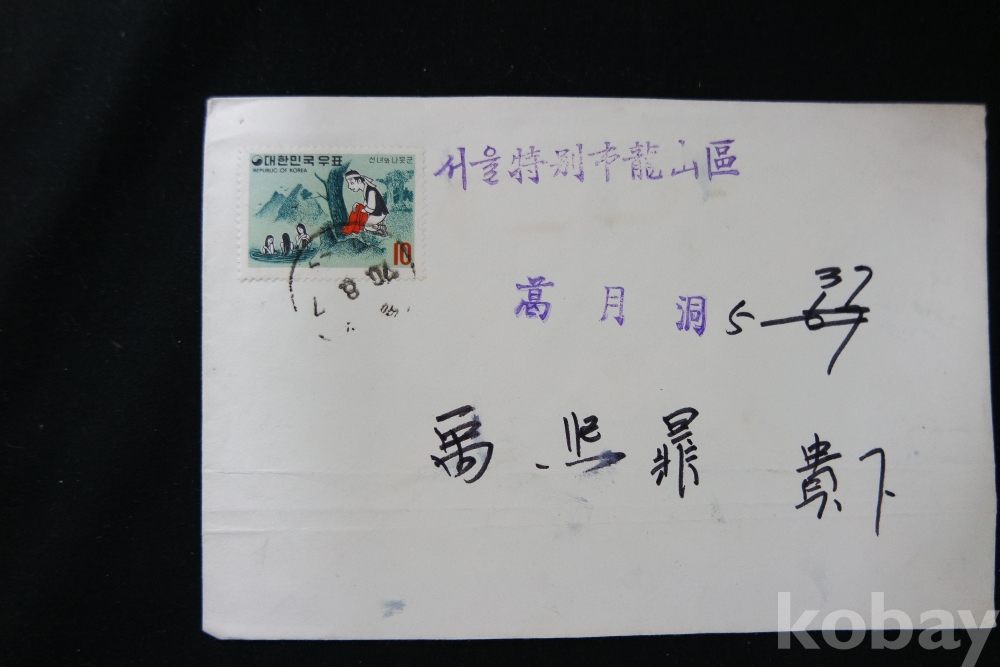 대한민국우표 선녀와 나뭇군
REPUBLIC OF KOREA
10
서울特別市龍山區
葛月洞 5
37
貴下
kobay